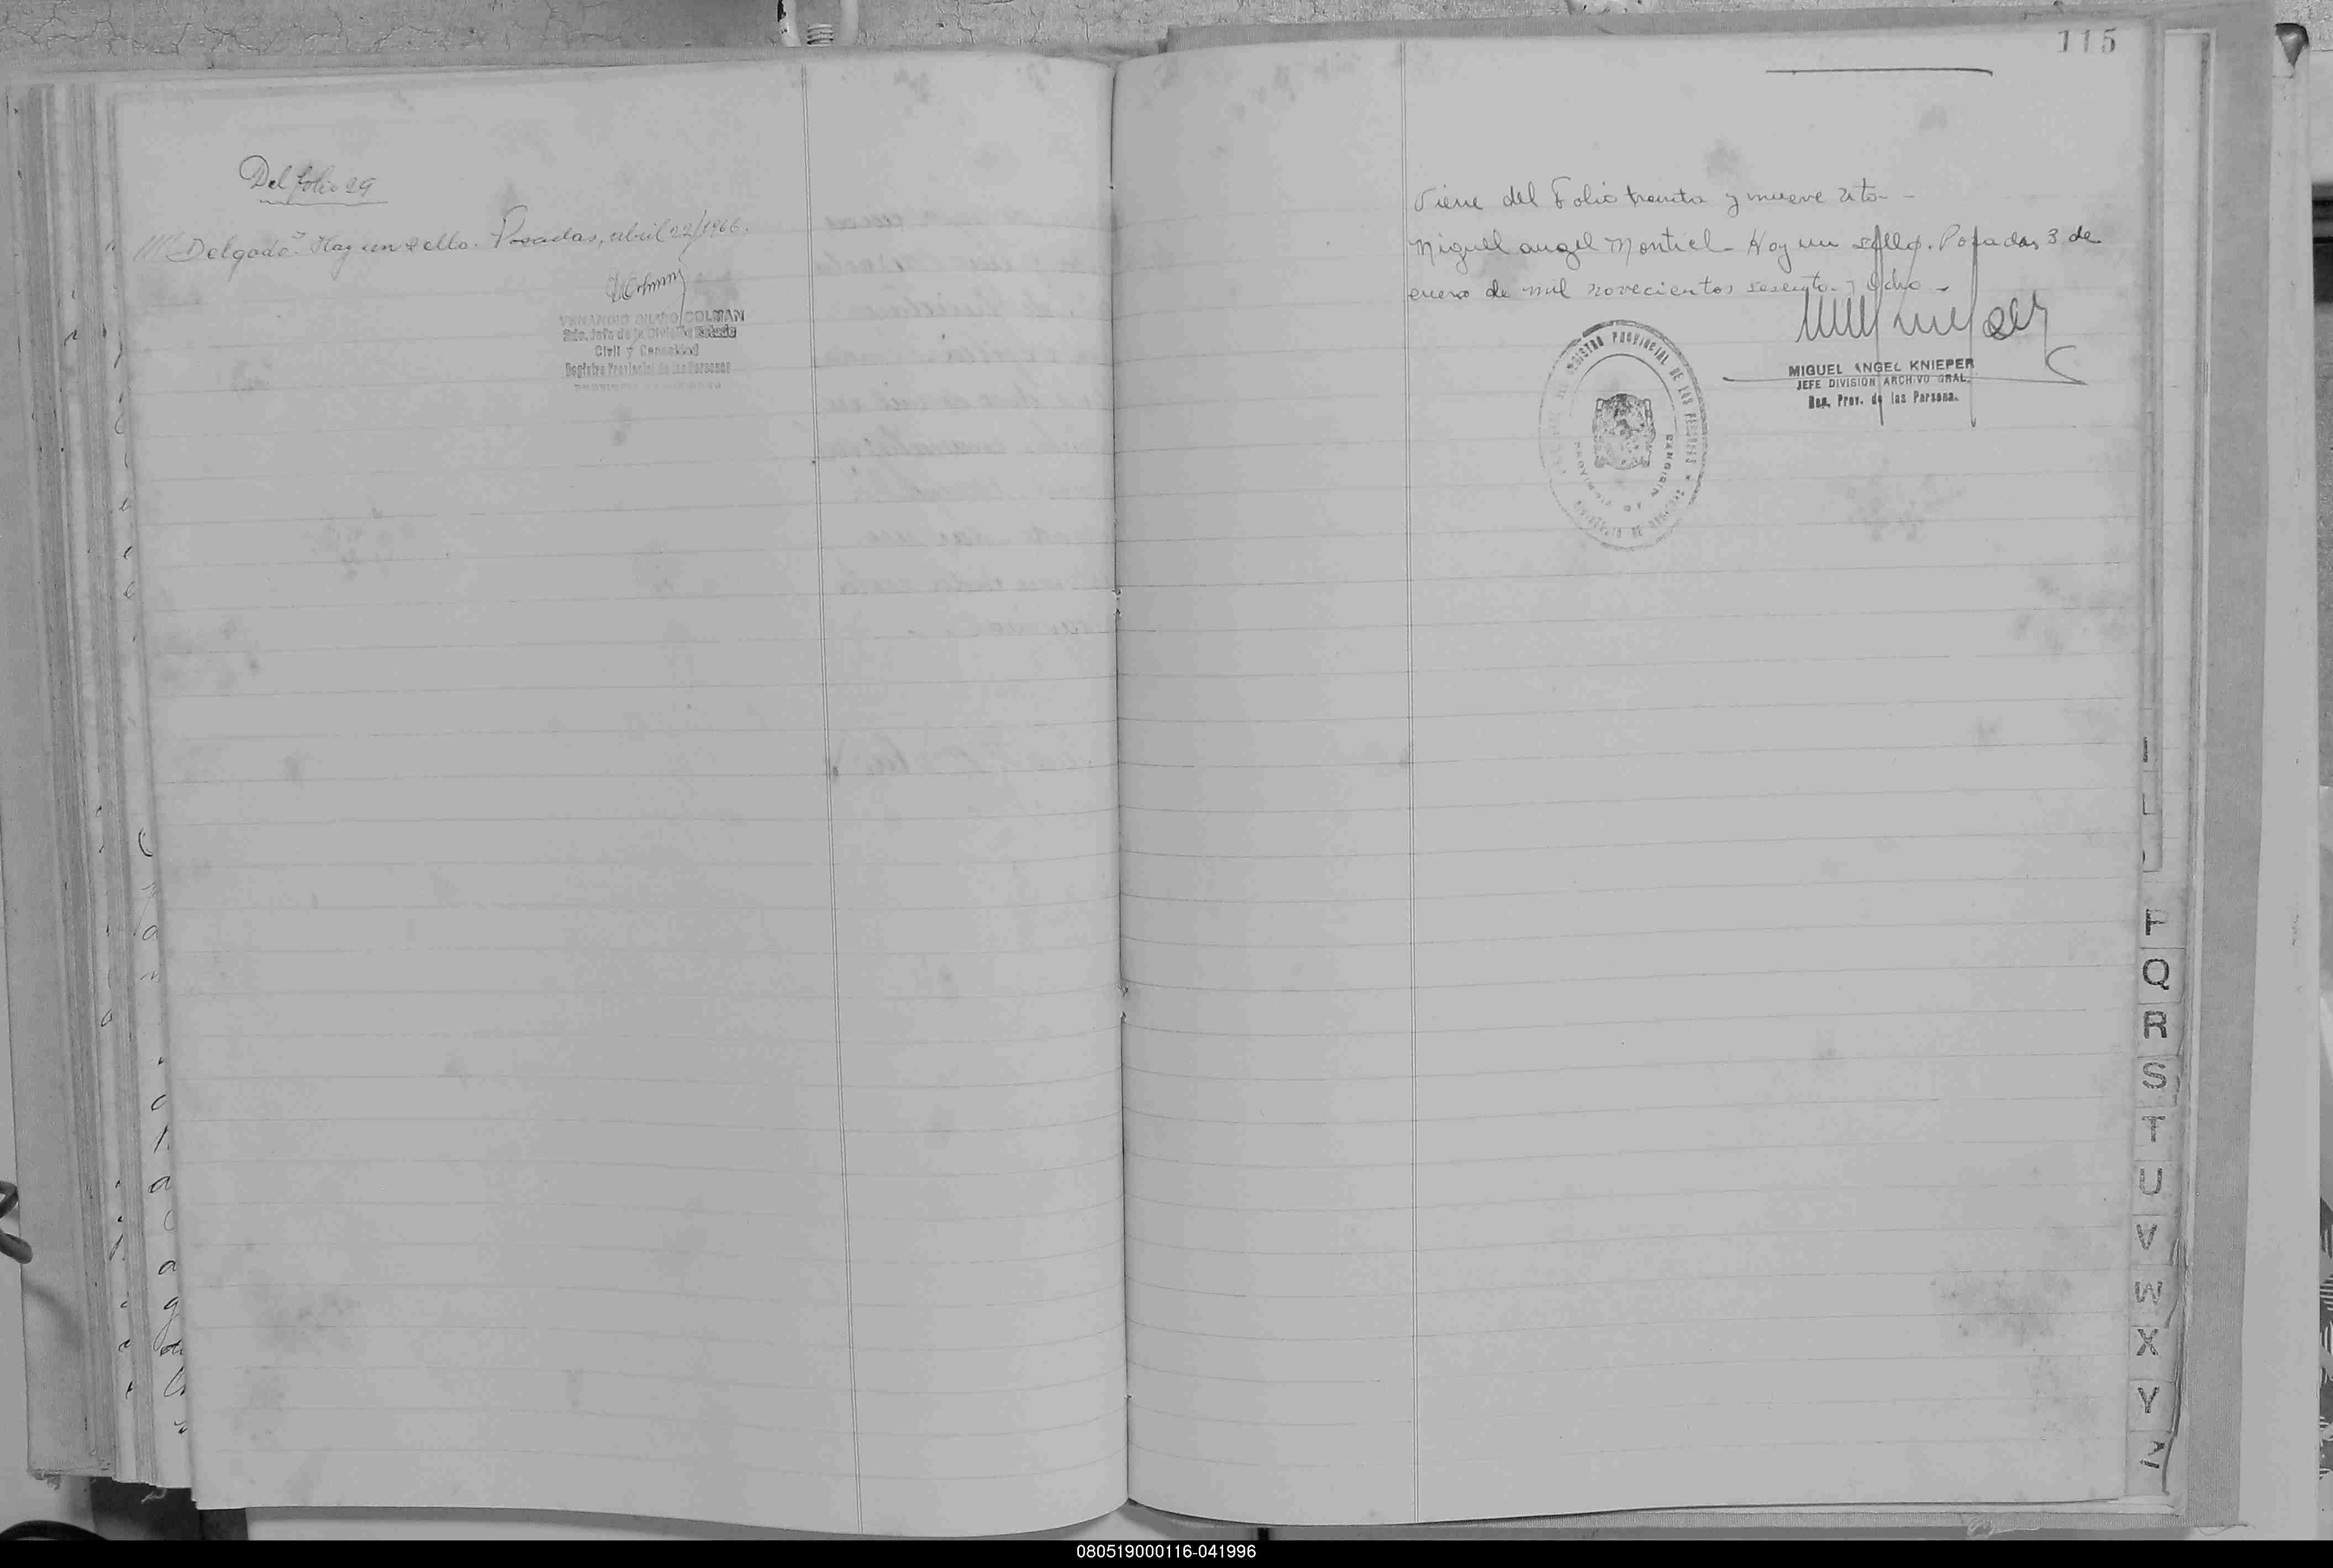 Del folio 29
/// Delgado". Hay un sello. Posadas, abril 22/1966.
VENANCIO COLMAN
Sdo. Jefe de la División Estado
Civil y Capacidad
Registro Provincial de las Personas
115
Viene del Folio treinta y nueve
Miguel angel Montiel - Hay un sello. Posadas 3 de
enero de mil novecientos sesenta y ocho -
MIGUEL ANGEL KNIEPER
JEFE DIVISION ARCHIVO GRAL.
Reg. Prov. de las Persona.
REGISTRO PROVINCIAL DE LAS PERSONAS
PROVINCIA DE MISIONES
L
Q
R
S
T
U
V
W
X
Y
Z
080519000116-041996